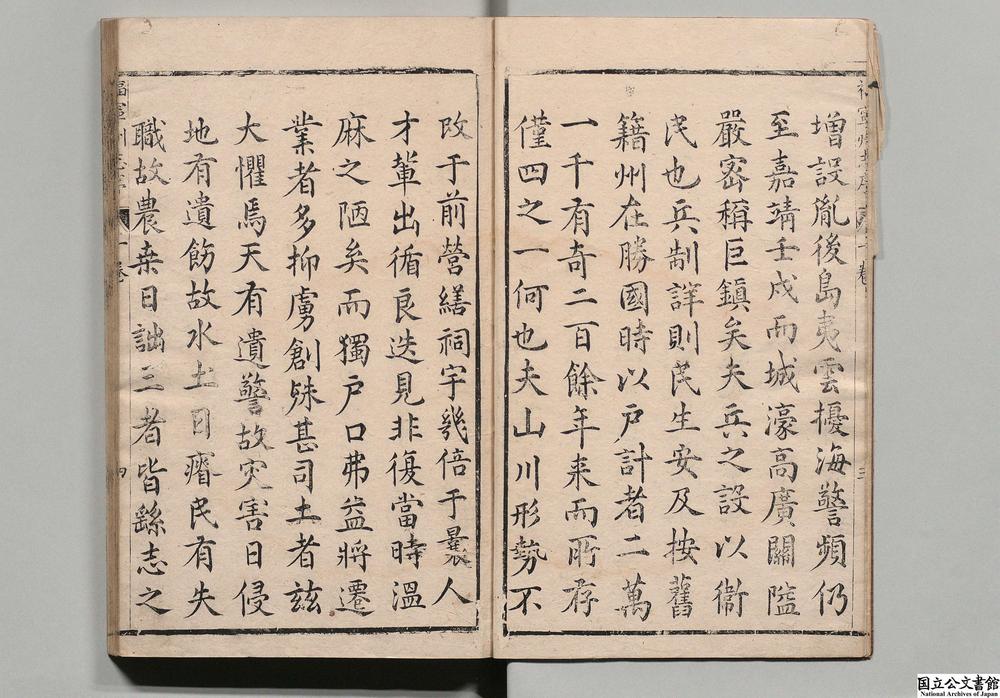 增設胤後島夷雲擾海警頻仍
至嘉靖壬戌而城濠高廣關隘
嚴密稱巨鎮矣夫兵之設以衞
民也兵制詳則民生安及按舊
籍州在勝國時以戶計者二萬
一千有奇二百餘年来而所存
僅四之一何也夫山川形勢不
改于前營繕祠宇幾倍于曩人
才輩出循良迭見非復當時溫
麻之陋矣而獨戶口弗益將遷
業者多抑虜創殊甚司土者兹
大懼焉天有遺警故灾害日侵
地有遺飭故水土日瘠民有失
職故農桒日詘三者皆繇志之
三
四
国立公文書館
National Archives of Japan